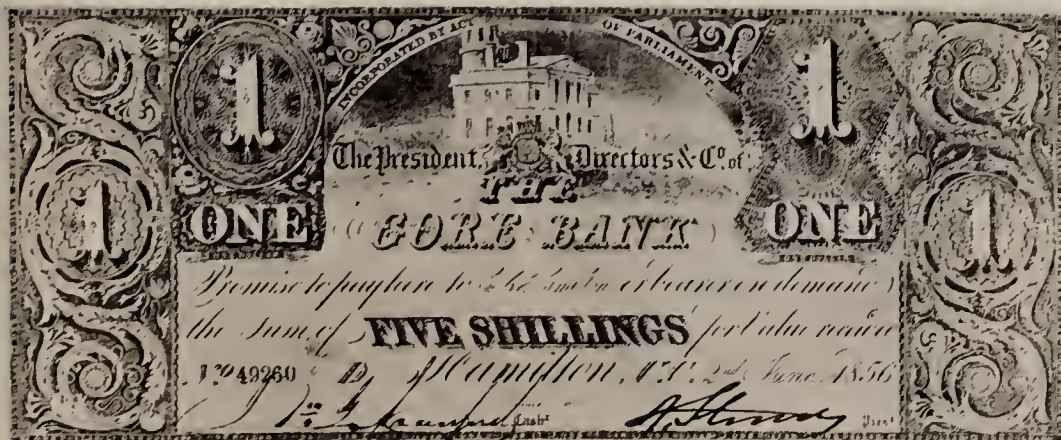 INCORPORATED BY ACT OF PARLIAMENT
1 1
The President, Directors & Co. of
THE
ONE GORE BANK ONE
1 1
Promise to pay here to or bearer on demand
the sum of FIVE SHILLINGS for value received
No 49260 D Hamilton, 2nd June 1856
Cashr Prest